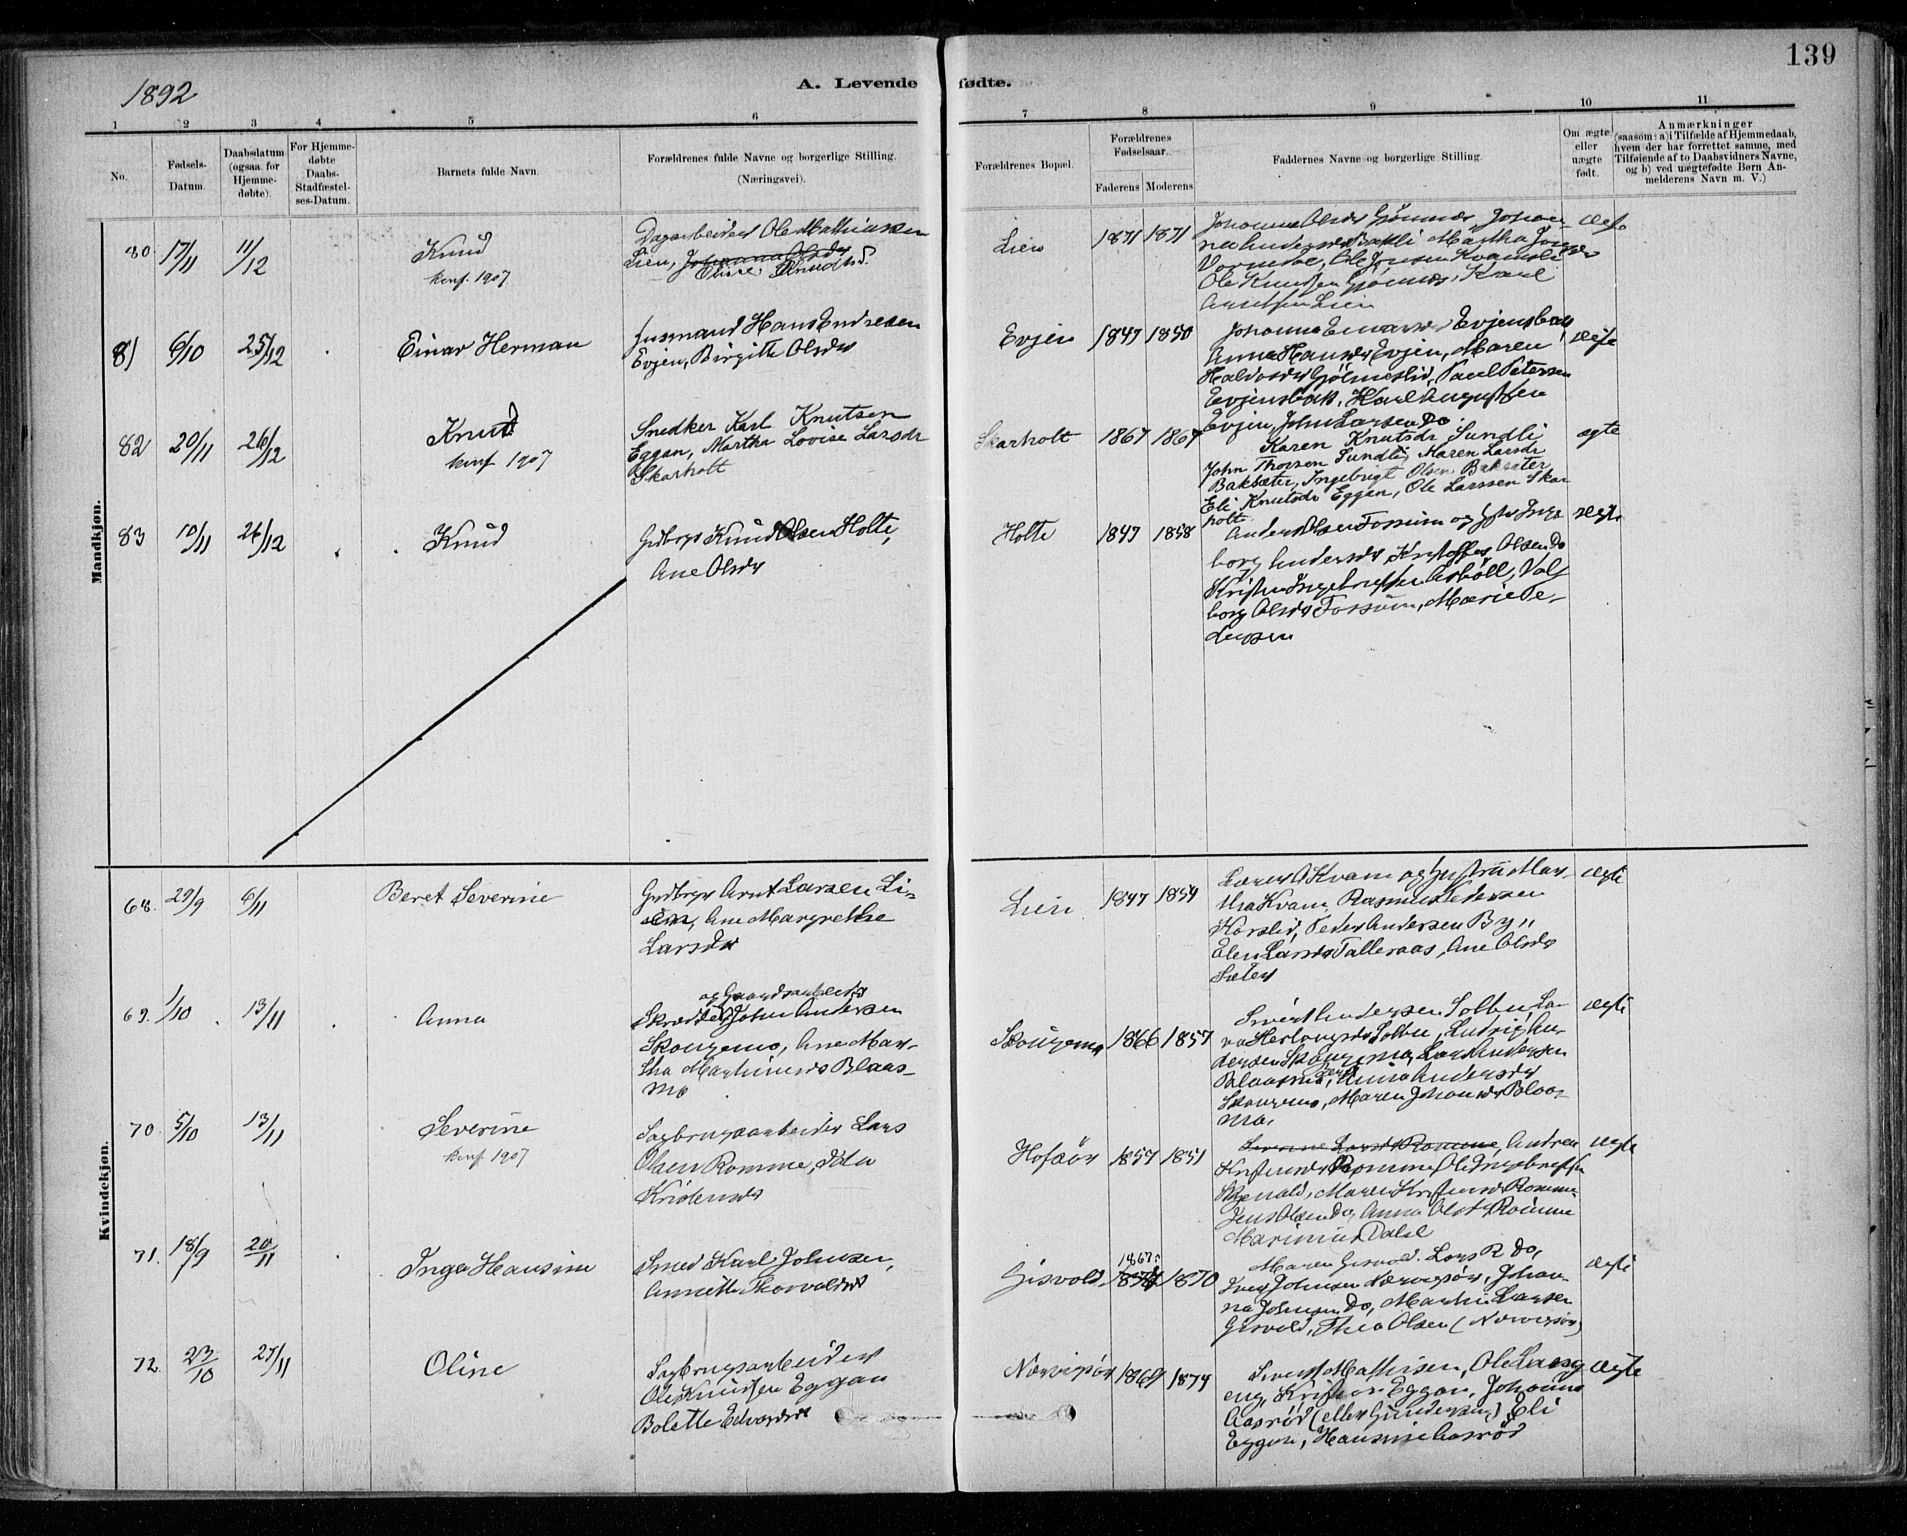 139
1892
A. Levende fødte.
1 2 3 4 5 6 7 8 9 10 11
No.
Fødsels-
Datum.
Daabsdatum
(ogsaa for
Hjemme-
døbte).
For Hjemme-
døbte
Daabs-
Stadfæstel-
ses-Datum.
Barnets fulde Navn.
Forældrenes fulde Navne og borgerlige Stilling.
(Næringsvei).
Forældrenes Bopæl.
Forældrenes
Fødselsaar.
Faderens Moderens
Faddernes Navne og borgerlige Stilling.
Om ægte
eller
uægte
født.
Anmærkninger
(saasom: a) i Tilfælde af Hjemmedaab,
hvem der har forrettet samme, med
Tilføiende af to Daabsvidners Navne,
og b) ved uægtefødte Børn An-
melderens Navn m. V.)
Mandkjøn.
80 17/11 11/12
Knud
konf. 1907
Dagarbeider Ole Mathiasen
Lien, Johanna Olsdr
Elise Knudtsd.
Lien 1871 1871
Ole Knudsen Gjønnes, Karl
Arntsen Lien
81 6/10 25/12
Einar Herman
Husmand Hans Endresen
Evjen, Birgitte Olsdr
Evjen 1847 1850
Johanna Einarsdr Evjensbak
Anna Hansdr Evjen, Maren
Haldosdr Gjølmeslid, Paul Petersen
Evjensbak, Karl Augustsen
Evjen, John Larsen Do
ægte
82 20/11 26/12
Knud
konf. 1907
Snedker Karl Knutsen
Eggan, Martha Lovise Larsdr
Skarholt
Skarholt 1867 1867
Karen Knutsdr Sundli
John Thorsen Sundli, Maren Larsdr
Baksæter, Ingebrigt Olsen Baksæter
Eli Knutsdr Eggen, Ole Larssen Skar
holt
ægte
83 10/11 26/12
Knud
Grdbrgr Knud Olsen Holte,
Ane Olsdr
Holte 1847 1858
Anders Olsen Fossum og Hstr Inge
borg Andersdr, Kristoffer Olsen Do
Kristen Ingebrigtsen Asbøll, Val
borg Olsdr Fossum, Marie Pe-
dersen
ægte
Kvindekjøn.
68. 29/9 6/11
Beret Severine
Grdbrgr Arnt Larsen Li-
en, Ane Margrethe
Larsdr
Lien 1847 1854
Lærer A Kvam og Hustru Mar-
tha Kvam, Rasmus Pedersen
Korslid, Peder Andersen By,
Elen Larsdr Talleraas, Ane Olsdr
Sæter
ægte
69. 1/10 13/11
Anna
og Gaardsarbeider
Skrædder John Andersen
Skougemo, Ane Mar-
tha Martinusdr Blaas-
mo
Skougemo 1866 1857
Sivert Andersen Solbu, La-
ra Herlougsdr Solbu, Ludvig An-
dersen Skougemo, Lars Andersen
Blaasmo, Anna Andersdr
Skougemo, Maren Johansdr Blaas-
mo.
ægte
70. 5/10 13/11
Severine
konf. 1907
Sagbrugsarbeider Lars
Olsen Romme, Ida
Kristensdr
Hofsør 1857 1851
Severine Larsdr Romme, Andrea
Kristensdr Romme, Ole Ingebrigtsen
Maren Kristensdr Romme
Jens Olsen Do, Anna Olsdtr Romme
Marinius Dalsl
ægte
71. 18/9 20/11
Inga Hansine
Smed Karl Johnsen,
Annette Thorvaldsdr
Gisvold 1867 1870
Maren Gisvold, Lars R Do,
Iver Johnsen Nærvigsør, Johan-
na Johnsen Do, Martin Larsen
Gisvold, Thea Olsen (Nærvigsør)
ægte
72. 23/10 27/11
Oline
Sagbrugsarbeider
Ole Knudsen Eggan
Bolette Edvardsdr
Nærvigsør 1869 1874
Sivert Mathisen, Ole Lang
eng, Kristen Eggan, Johanna
Aasrød (eller Gundersen) Eli
Eggan, Hansine Aasrød
ægte